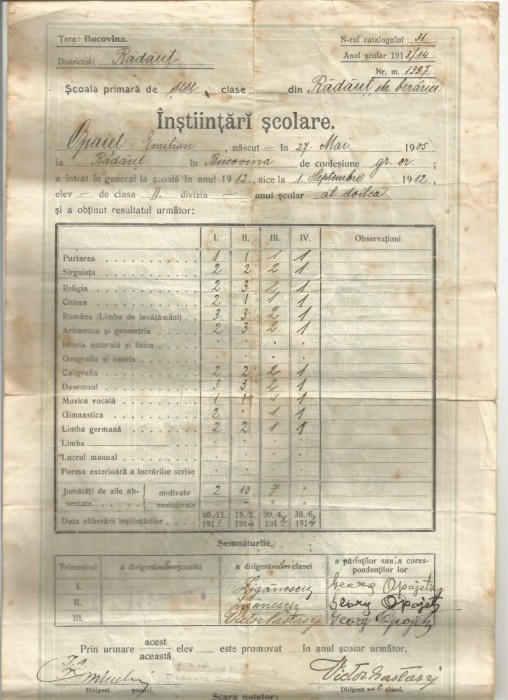 Țara: Bucovina.
N-rul catalogului 31
Districtul: Rădăuț
Anul școlar 1913/14
Nr. m. 1327
Școala primară de clase din Rădăuț str. berăriei
Înștiințări școlare.
Opaieț Emilian, născut — în 27. Mai 1905
la Rădăuț în Bucovina de confesiune gr. or.;
a intrat în general la școală în anul 1912, aice la 1. Septembre 1912,
elev — de clasa II. divizia — anul școlar al doilea
și a obținut resultatul următor:
I. II. III. IV. Observațiuni
Purtarea 1 1 1 1
Sirguința 2 2 2 1
Religia 2 3 2 1
Citirea 2 1 1 1
Româna (Limba de învățământ) 3 3 2 1
Aritmetica și geometria 2 3 2 1
Istoria naturală și fizica
Geografia și istoria
Caligrafia 2 2 2 1
Desemnul 3 3 2 1
Muzica vocală 1 1 1 1
Gimnastica 2 · 1 1
Limba germană 2 2 1 1
Limba
*Lucrul manual
Forma exterioară a lucrărilor scrise
Jumătăți de zile absentate motivate 2 10 7
nemotivate
Data eliberării înștiințărilor 15./2. 1914 30./4. 1914 30./6. 1914
Semnăturile.
Trimestrul a dirigent școalei a dirigent clasei a părinților sau a corespondenților lor
I. Țigănescu Georg Opajetz
II. Țigănescu Georg Opajetz
III. Victor Georg Opajetz
Prin urmare acest/această elev — este promovat în anul școlar următor.
Victor
Dirigent școalei. Dirigent clasei.
Scara notelor: